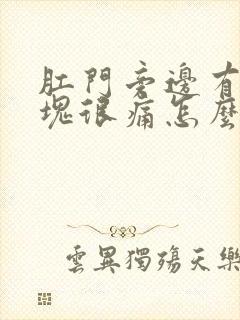 肛門旁邊有
塊很痛怎麼
雲異獨殤天樂